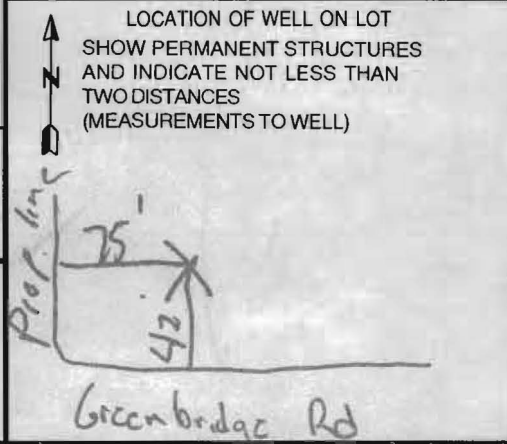 LOCATION OF WELL ON LOT
SHOW PERMANENT STRUCTURES
N AND INDICATE NOT LESS THAN
TWO DISTANCES
(MEASUREMENTS TO WELL)
Prop. line
75'
42
Greenbridge Rd